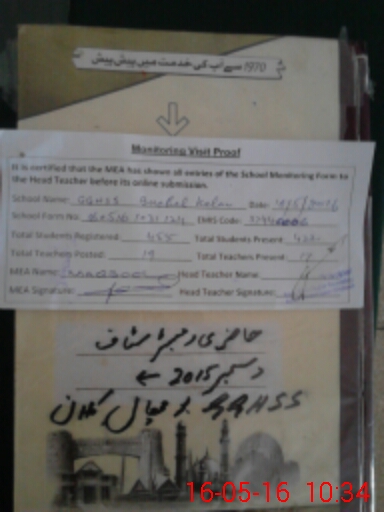 1970 سے آپ کی خدمت میں پیش پیش
Monitoring Visit Proof
It is certified that the MEA has shown all entries of the School Monitoring Form to
the Head Teacher before its online submission.
School Name: GGHSS Kalan Date:
School Form No. EMIS Code:
Total Students Registered: 455 Total Students Present:
Total Teachers Posted: 19 Total Teachers Present: 17
MEA Name: Head Teacher Name:
MEA Signature: Head Teacher Signature:
حاضری رجسٹر سٹاف
دسمبر 2015 ←
GGHSS کلاں
16-05-16 10:34